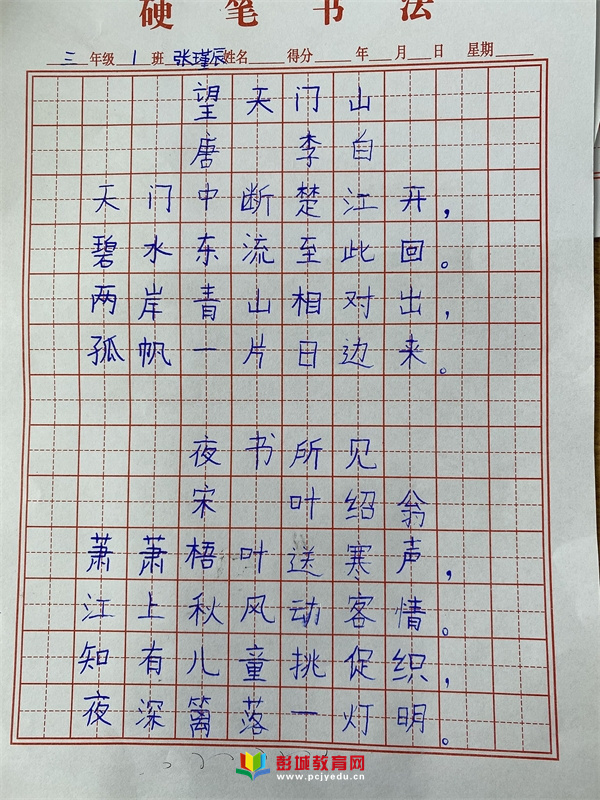 硬笔书法
三年级1班张瑾辰姓名 得分 年 月 日 星期
望天门山
唐 李白
天门中断楚江开，
碧水东流至此回。
两岸青山相对出，
孤帆一片日边来。
夜书所见
宋 叶绍翁
萧萧梧叶送寒声，
江上秋风动客情。
知有儿童挑促织，
夜深篱落一灯明。
彭城教育网
www.pcjyedu.cn